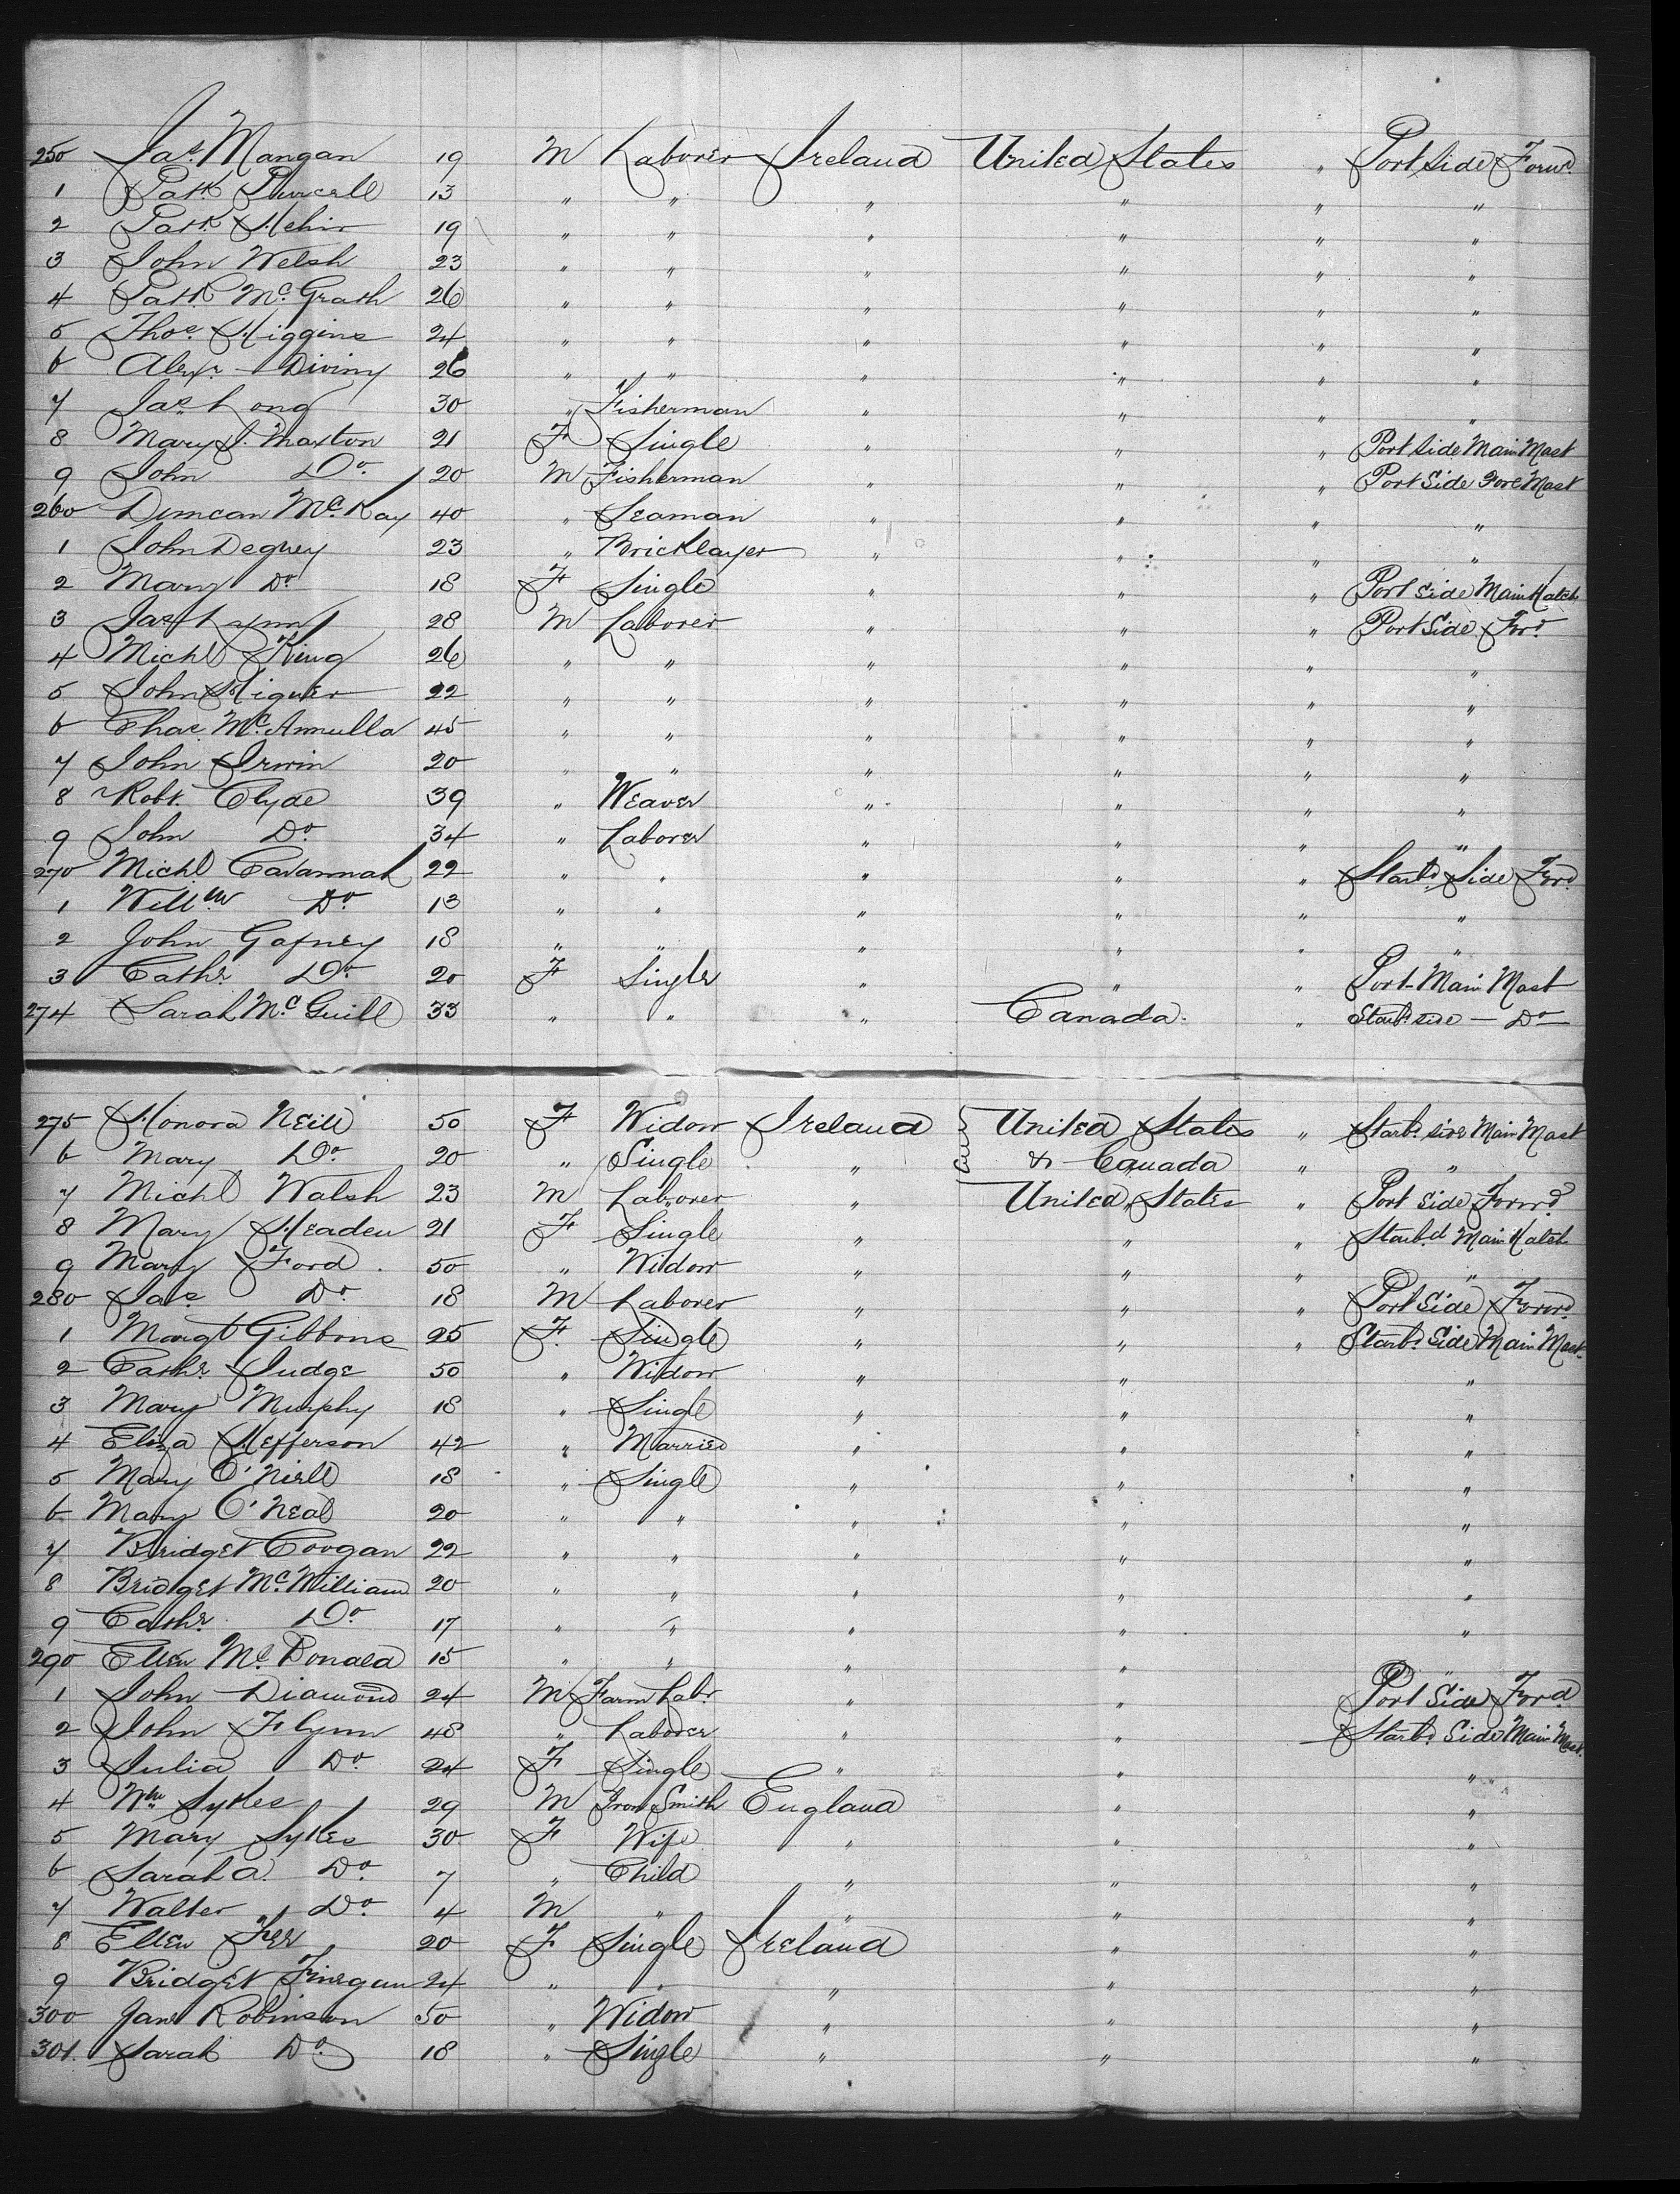 250 Jas. Mangan 19 M Laborer Ireland United States " Port Side Forwd.
1 Patk. Purcell 13 " " " " " "
2 Patk. Mehir 19 " " " " " "
3 John Welsh 23 " " " " " "
4 Patk. McGrath 26 " " " " " "
5 Thos. Higgins 24 " " " " " "
6 Alexr. Diviny 26 " " " " " "
7 Jas. Long 30 " Fisherman " " " "
8 Mary J. Maxton 21 F Single " " " Port Side Main Mast
9 John Do. 20 M Fisherman " " " Port Side Fore Mast
260 Duncan McKay 40 " Seaman " " " "
1 John Degney 23 " Bricklayer " " " "
2 Mary Do. 18 F Single " " " Port Side Main Hatch
3 Jas. 28 M Laborer " " " Port Side Ford.
4 Michl King 26 " " " " " "
5 John Higuer 22 " " " " " "
6 Chas. McAnnulla 45 " " " " " "
7 John Irwin 20 " " " " " "
8 Robt. Clyde 39 " Weaver " " " "
9 John Do. 34 " Laborer " " " "
270 Michl Cavannah 22 " " " " " Starbd. Side Ford.
1 Willm Do. 13 " " " " " "
2 John Gafney 18 " " " " " "
3 Cathr. Do. 20 F Single " " " Port Main Mast
274 Sarah McGuill 33 " " " Canada. " Starb. side — Do
275 Honora Neill 50 F Widow Ireland United States " Starb. side Main Mast
6 Mary Do. 20 " Single " & Canada " "
7 Michl Walsh 23 M Laborer " United States " Port Side Forwd.
8 Mary Headen 21 F Single " " " Starbd Main Hatch
9 Mary Ford 50 " Widow " " " "
280 Jas. Do. 18 M Laborer " " " Port Side Forwd.
1 Margt Gibbons 25 F. Single " " " Starb. Side Main Mast
2 Cathr. Judge 50 " Widow " " "
3 Mary Murphy 18 " Single " " "
4 Eliza Hefferson 42 " Married " " "
5 Mary O'Niell 18 " Single " " "
6 Mary O'Neal 20 " " " " "
7 Bridget Coogan 22 " " " " "
8 Bridget McWilliam 20 " " " " "
9 Cathr. Do. 17 " " " " "
290 Ellen McDonald 15 " " " " "
1 John Diamond 24 M Farm Labr " " Port Side Ford
2 John Flynn 48 " Laborer " " Starb. Side Main Mast.
3 Julia Do. 24 F Single " " "
4 Wm Sykes 29 M Iron Smith England " "
5 Mary Sykes 30 F Wife " " "
6 Sarah A. Do. 7 " Child " " "
7 Walter Do. 4 M " " " "
8 Ellen Fee 20 F Single Ireland " "
9 Bridget Finegan 24 " " " " "
300 Jane Robinson 50 " Widow " " "
301. Sarah Do. 18 " Single " " "